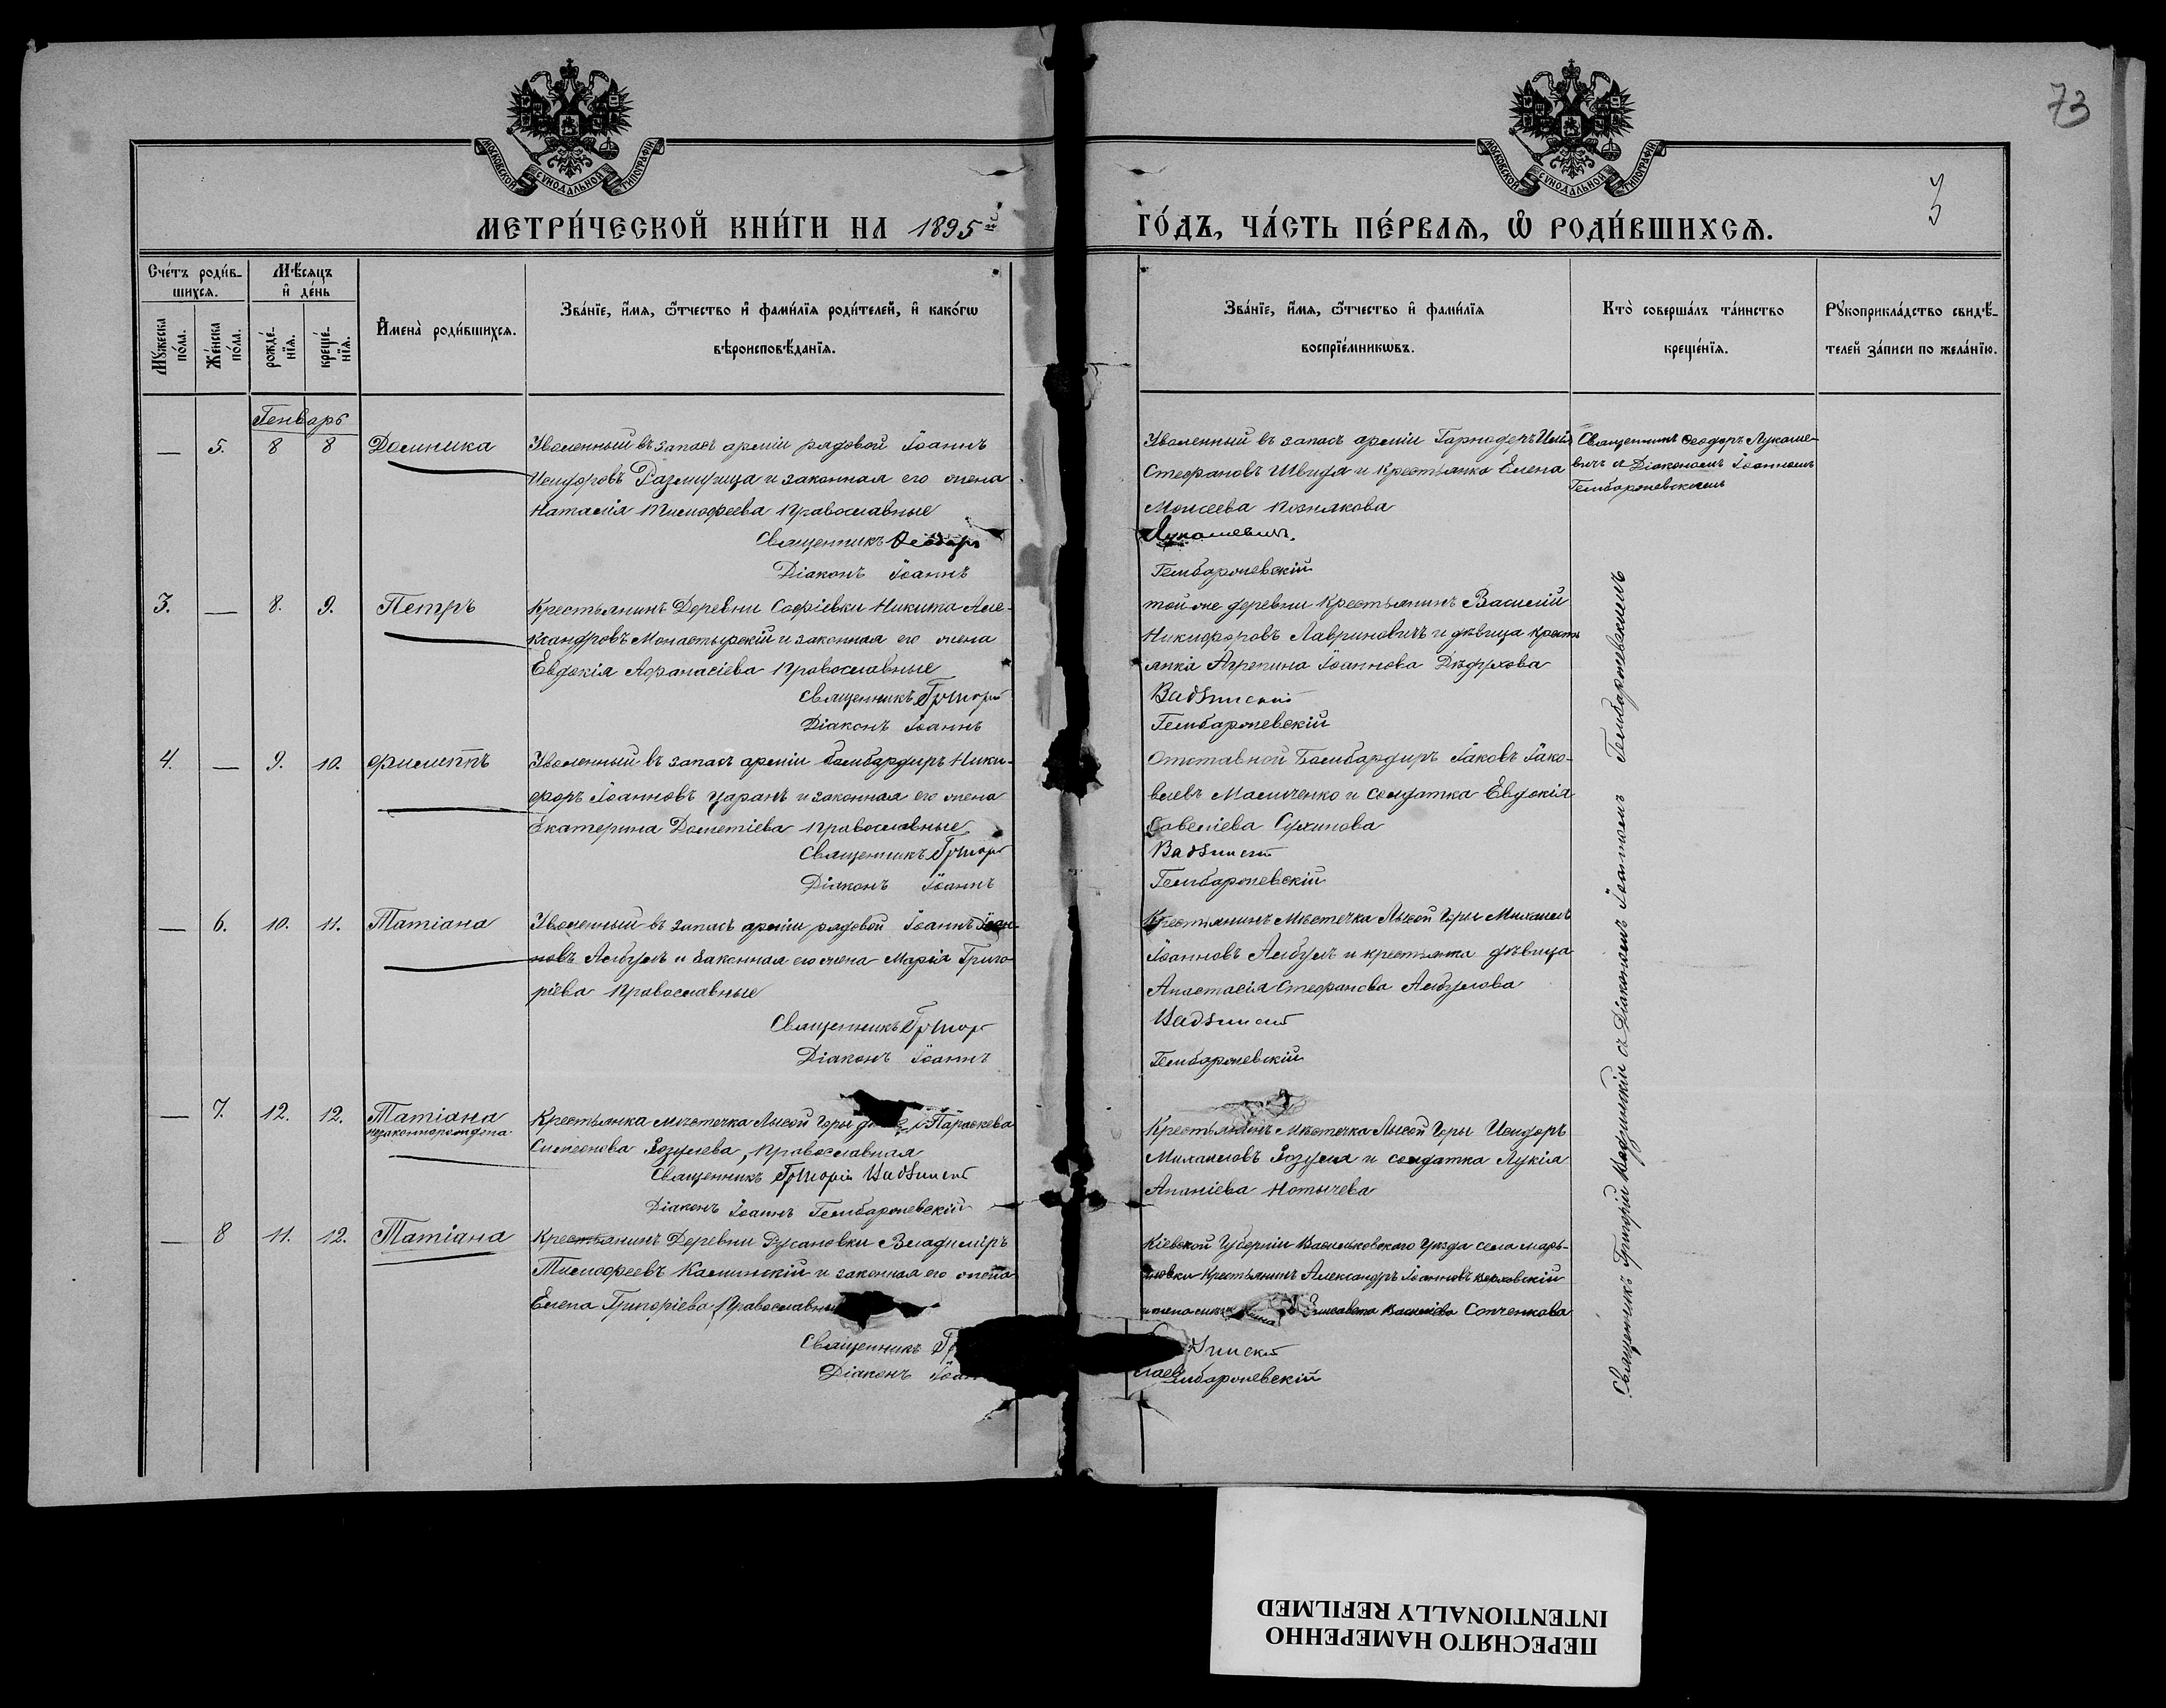 73
3
МОСКОВСКОЙ СѴНОДАЛЬНОЙ ТИПОГРАФІИ
МОСКОВСКОЙ СѴНОДАЛЬНОЙ ТИПОГРАФІИ
МЕТРИ́ЧЕСКОЙ КНИ́ГИ НА 1895й
ГО́ДЪ, ЧА́СТЬ ПЕ́РВАѦ, Ѡ҆ РОДИ́ВШИХСѦ.
Сче́тъ роди́в-
шихсѧ.
Мѣ́сѧцъ
и҆ де́нь
Мꙋжеска по́ла.
Же́нска по́ла.
рожде́-нїѧ.
креще́-нїѧ.
И҆мена̀ роди́вшихсѧ.
Зва́нїе, и҆́мѧ, ѻ҆́тчество и҆ фами́лїѧ роди́телей, и҆ како́гѡ
вѣроисповѣ́данїѧ.
Зва́нїе, и҆́мѧ, ѻ҆́тчество и҆ фами́лїѧ
воспрїе́мникѡвъ.
Кто̀ соверша́лъ та́инство
креще́нїѧ.
Рꙋкоприкла́дство свидѣ́-
телей за́писи по жела́нїю.
Генварь
— 5. 8 8 Домника
Уволенный въ запасъ арміи рядовой Іоаннъ
Исидоровъ и законная его жена
Наталія Тимофеева Православные
Священникъ Ѳеодоръ
Діаконъ Іоаннъ
Уволенный въ запасъ арміи
Стефановъ Швидя и Крестьянка Елена
Моисеева Познякова
Лукашевичъ.
Гембаржевскій
Священникъ Ѳеодоръ Лукаше-
вичъ съ Діакономъ Іоанномъ
Гембаржевскимъ
3. — 8. 9. Петръ
Крестьянинъ Деревни Софіевки Никита Але-
ксандровъ Монастырскій и законная его жена
Евдокія Афанасіева Православные
Священникъ Григорій
Діаконъ Іоаннъ
той же деревни Крестьянинъ Василій
Никифоровъ Лавриновичъ и дѣвица крестъ
янка Агрепина Іоаннова
Вадзинскій
Гембаржевскій
4. — 9. 10. Филиппъ
Уволенный въ запасъ арміи бомбардиръ Ники-
форъ Іоанновъ Царанъ и законная его жена
Екатерина Дометіева Православные
Священникъ Григорій
Діаконъ Іоаннъ
Отставной Бомбардиръ Іаковъ Іако-
влевъ Маличенко и солдатка Евдокія
Савеліева Сухинова
Вадзинскій
Гембаржевскій
— 6. 10. 11. Татіана
Уволенный въ запасъ арміи рядовой Іоаннъ Іоан-
новъ Албулъ и законная его жена Марія Григо
ріева Православные
Священникъ Григорій
Діаконъ Іоаннъ
Крестьянинъ Мѣстечка Лысой Горы Михаилъ
Іоанновъ Албулъ и крестьянка дѣвица
Анастасія Стефанова Албулова
Вадзинскій
Гембаржевскій
— 7. 12. 12. Татіана
незаконнорожденна
Крестьянка мѣстечка Лысой Горы Параскева
Симеонова Гозулева, Православная
Священникъ Григорій Вадзинскій
Діаконъ Іоаннъ Гембаржевскій
Крестьянинъ Мѣстечка Лысой Горы Исидоръ
Михаиловъ Гозуля и солдатка Лукія
Ананіева
— 8 11. 12. Татіана
Крестьянинъ Деревни Русановки Владиміръ
Тимофеевъ Калинскій и законная его жена
Елена Григоріева Православны
Священникъ Гр
Діаконъ Іоан
Кіевской Губерніи Васильковского Уѣзда села Марь-
яновки Крестьянинъ Александръ Іоанновъ
Елисавета Василіева Сопченкова
дзинскій
ембаржевскій
Священникъ Григорій Вадзинскій съ Діакономъ Іоанномъ Гембаржевскимъ
ПЕРЕСНЯТО НАМЕРЕННО
INTENTIONALLY REFILMED